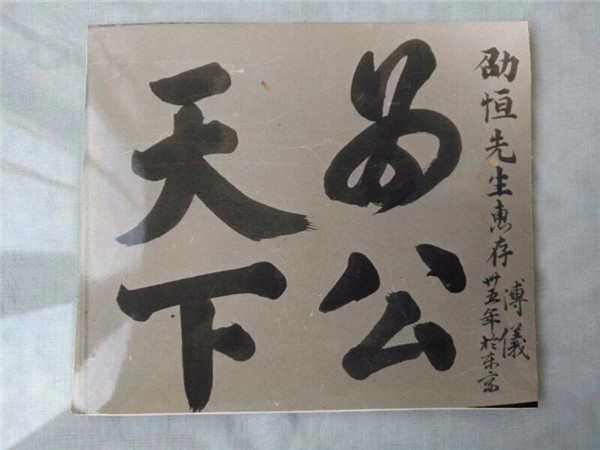 劭恒先生惠存
溥儀
卅五年於東京
為公
天下